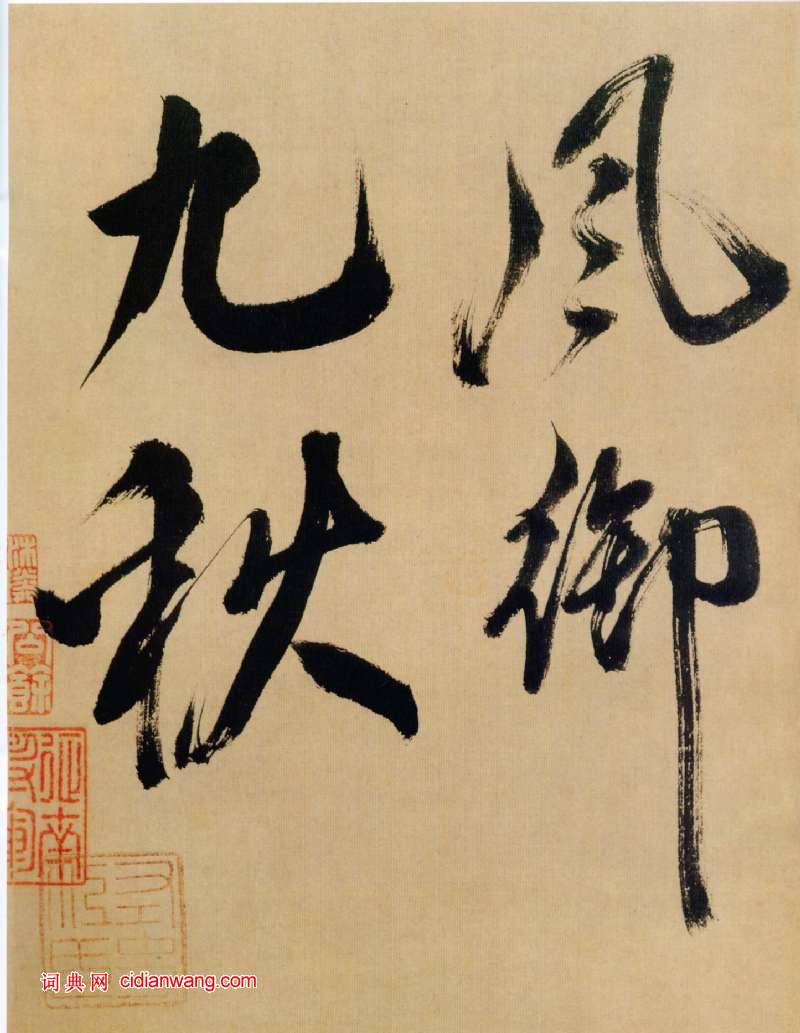 風御
九秋
词典网 cidianwang.com